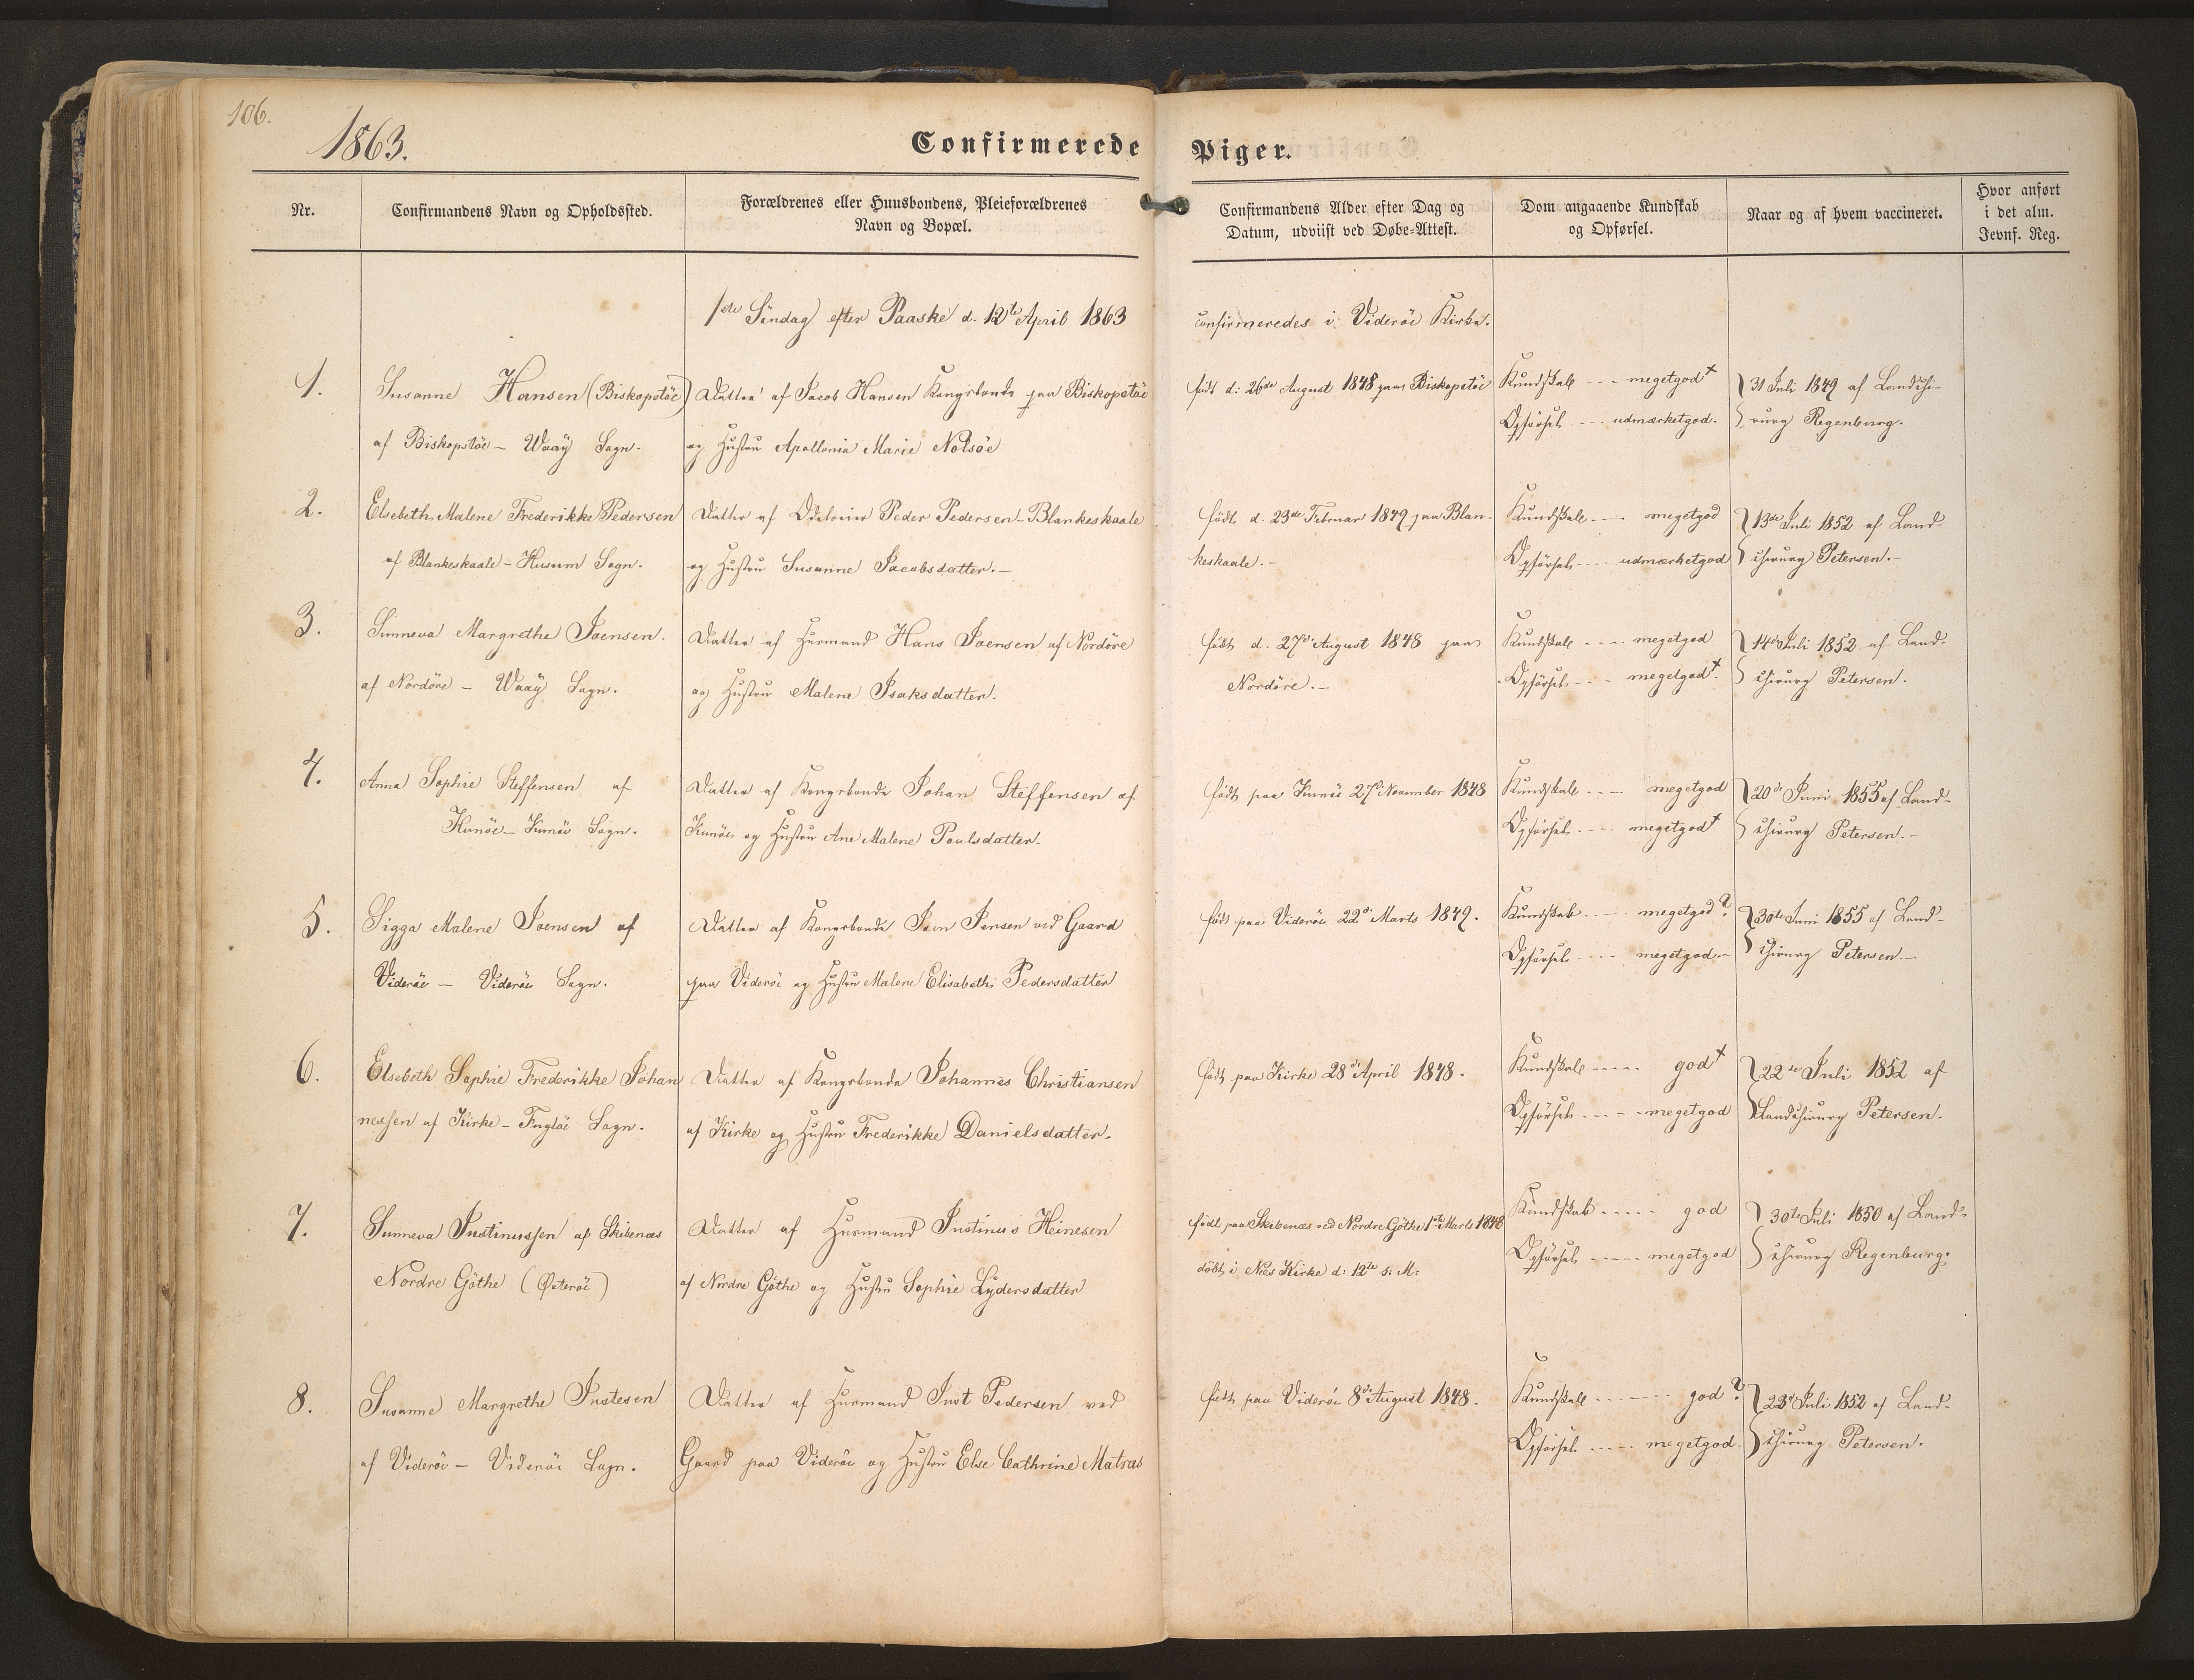 106.
1863.
Confirmerede Piger.
Nr.
Confirmandens Navn og Opholdssted.
Forældrenes eller Huusbondens, Pleieforældrenes
Navn og Bopæl.
Confirmandens Alder efter Dag og
Datum, udviist ved Døbe-Attest.
Dom angaaende Kundskab
og Opførsel.
Naar og af hvem vaccineret.
Hvor anført
i det alm.
Jevnf. Reg.
1ste Söndag efter Paaske d. 12te April 1863 confirmeredes i Videröe Kirke.
1.
Susanne Hansen (Biskopstöe)
af Biskopstöe - Waaÿ Sogn.
Datter af Jacob Hansen Kongsbonde paa Biskopstöe
og Hustru Apollonia Marie Nolsöe
födt d: 26de August 1848 paa Biskopstöe
Kundskab --- megetgod+
Opförsel --- udmærketgod.
31 Juli 1849 af Landchi-
rurg Regenburg.
2.
Elsebeth Malene Frederikke Pedersen
af Blankeskaale - Husum Sogn.
Datter af Odelseier Peder Pedersen - Blankeskaale
og Hustru Susanne Jacobsdatter. -
födt d. 23de Februar 1849 paa Blan-
keskaale. -
Kundskab --- megetgod
Opförsel --- udmærketgod
13de Juli 1852 af Land-
chirurg Petersen. -
3.
Sinneva Margrethe Joensen.
af Nordöre - Waaÿ Sogn.
Datter af Huusmand Hans Joensen af Nordöre
og Hustru Malene Isaksdatter.
födt d. 27de August 1848 paa
Nordöre. -
Kundskab --- megetgod
Opförsel --- megetgod+.
14de Juli 1852 af Land-
chirurg Petersen.
4.
Anna Sophie Steffensen af
Kunöe - Kunöe Sogn.
Datter af Kongsbonde Johan Steffensen af
Kunöe og Hustru Ane Malene Poulsdatter.
födt paa Kunöe 27de November 1848
Kundskab --- megetgod
Opförsel --- megetgod+
20de Juni 1855 af Land-
chirurg Petersen. -
5.
Sigga Malene Joensen af
Videröe - Videröe Sogn.
Datter af Kongsbonde Joen Jensen ved Gaard
paa Videröe og Hustru Malene Elisabeth Pedersdatter
födt paa Videröe 22de Marts 1849.
Kundskab --- megetgod?
Opförsel --- megetgod. -
30te Juni 1855 af Land-
chirurg Petersen. -
6.
Elsebeth Sophie Frederikke Johan
nessen af Kirke - Fuglöe Sogn.
Datter af Kongsbonde Johannes Christiansen
af Kirke og Hustru Frederikke Danielsdatter.
födt paa Kirke 28de April 1848.
Kundskab ---- god+
Opförsel --- megetgod
22de Juli 1852 af
Landchirurg Petersen.
7.
Sunneva Justinussen af Skibenæs
Nordre Göthe (Østeröe)
Datter af Huusmand Justinus Heinesen
af Nordre Göthe og Hustru Sophie Lÿdersdatter
födt paa Skibenæs ved Nordre Göthe 1ste Marts 1848
döbt i Næs Kirke d: 12te s: M:
Kundskab ---- god
Opförsel --- megetgod
30te Juli 1850 af Land-
chirurg Regenburg.
8.
Susanne Margrethe Justesen
af Videröe - Videröe Sogn.
Datter af Huusmand Just Pedersen ved
Gaard paa Videröe og Hustru Else Cathrine Matras
födt paa Videröe 8de August 1848.
Kundskab ---- god?
Opförsel --- megetgod.
23de Juli 1852 af Land-
chirurg Petersen.